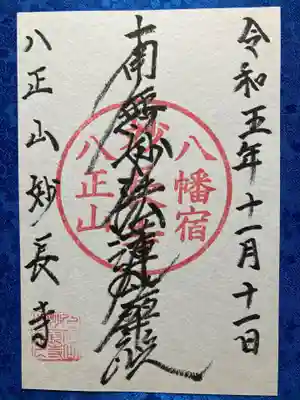 令和五年十一月十一日
南無妙法蓮華經
八幡宿
八正山
八正山妙長寺